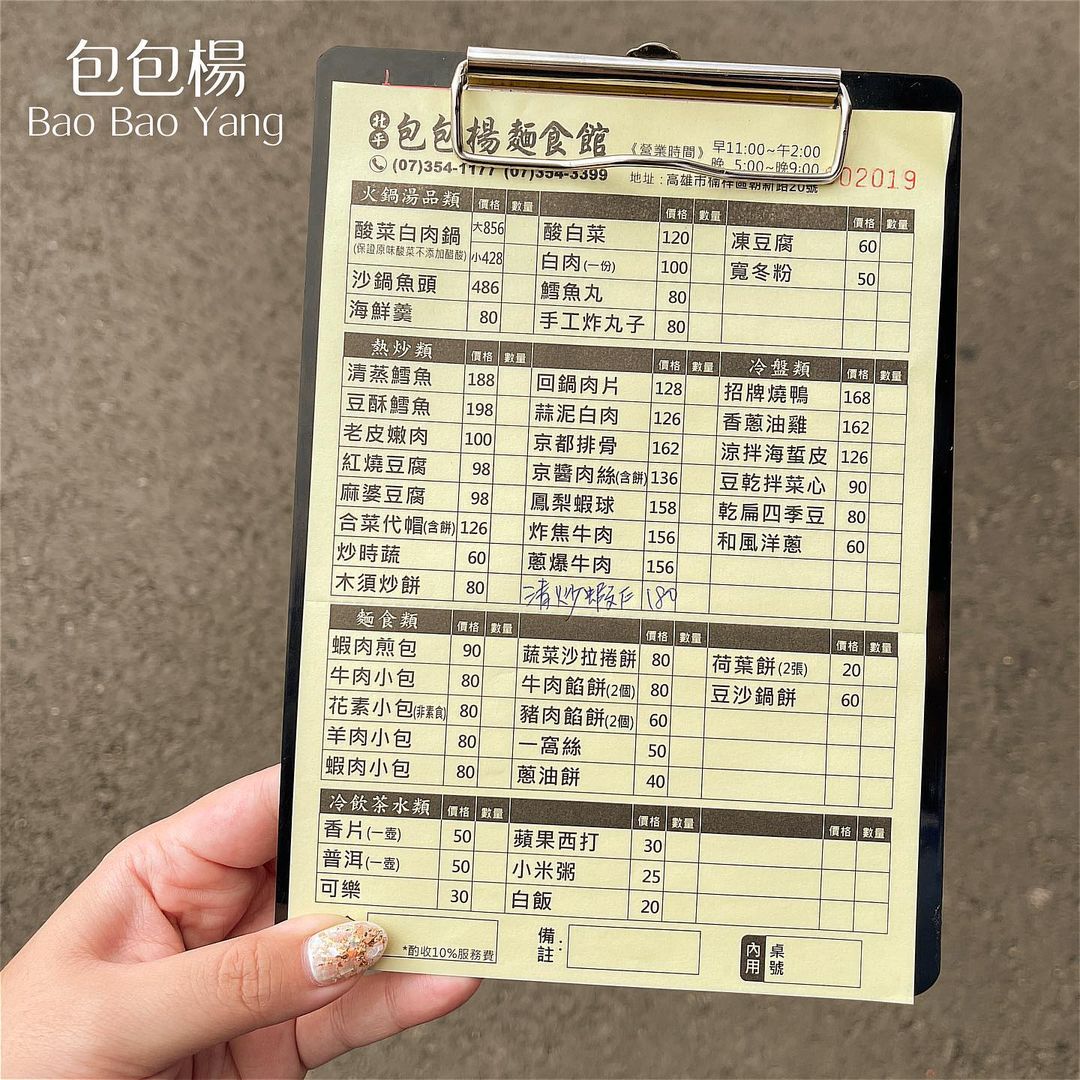 包包楊
Bao Bao Yang
北平 包包楊麵食館 《營業時間》 早11:00~午2:00
晚 5:00~晚9:00
(07)354-1177 (07)354-3399 地址:高雄市楠梓區朝新路20號 02019
火鍋湯品類 價格 數量 價格 數量 價格 數量
酸菜白肉鍋 大856 酸白菜 120 凍豆腐 60
(保證原味酸菜不添加醋酸) 小428 白肉(一份) 100 寬冬粉 50
沙鍋魚頭 486 鱈魚丸 80
海鮮羹 80 手工炸丸子 80
熱炒類 價格 數量 價格 數量 冷盤類 價格 數量
清蒸鱈魚 188 回鍋肉片 128 招牌燒鴨 168
豆酥鱈魚 198 蒜泥白肉 126 香蔥油雞 162
老皮嫩肉 100 京都排骨 162 涼拌海蜇皮 126
紅燒豆腐 98 京醬肉絲(含餅) 136 豆乾拌菜心 90
麻婆豆腐 98 鳳梨蝦球 158 乾扁四季豆 80
合菜代帽(含餅) 126 炸焦牛肉 156 和風洋蔥 60
炒時蔬 60 蔥爆牛肉 156
木須炒餅 80 清炒蝦仁 180
麵食類 價格 數量 價格 數量 價格 數量
蝦肉煎包 90 蔬菜沙拉捲餅 80 荷葉餅(2張) 20
牛肉小包 80 牛肉餡餅(2個) 80 豆沙鍋餅 60
花素小包(非素食) 80 豬肉餡餅(2個) 60
羊肉小包 80 一窩絲 50
蝦肉小包 80 蔥油餅 40
冷飲茶水類 價格 數量 價格 數量 價格 數量
香片(一壺) 50 蘋果西打 30
普洱(一壺) 50 小米粥 25
可樂 30 白飯 20
*酌收10%服務費 備註: 內用 桌號